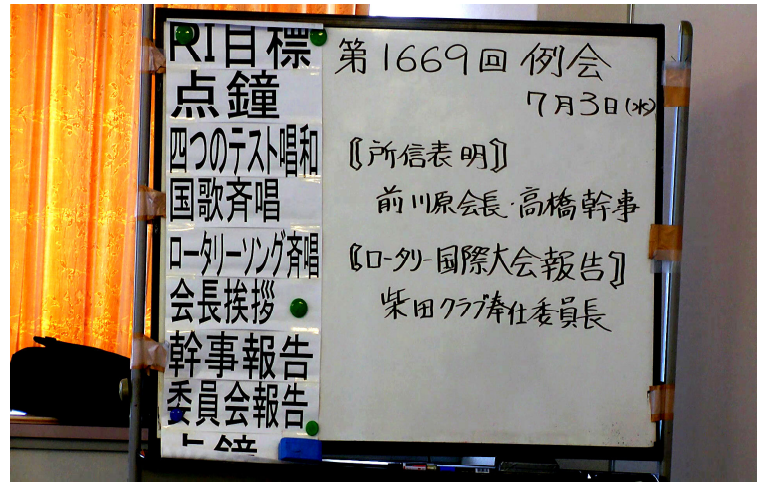 RI目標
点鐘
四つのテスト唱和
国歌斉唱
ロータリーソング斉唱
会長挨拶
幹事報告
委員会報告
点鐘
第1669回 例会
7月3日(水)
〖所信表明〗
前川原会長・高橋幹事
〖ロータリー国際大会報告〗
柴田クラブ奉仕委員長